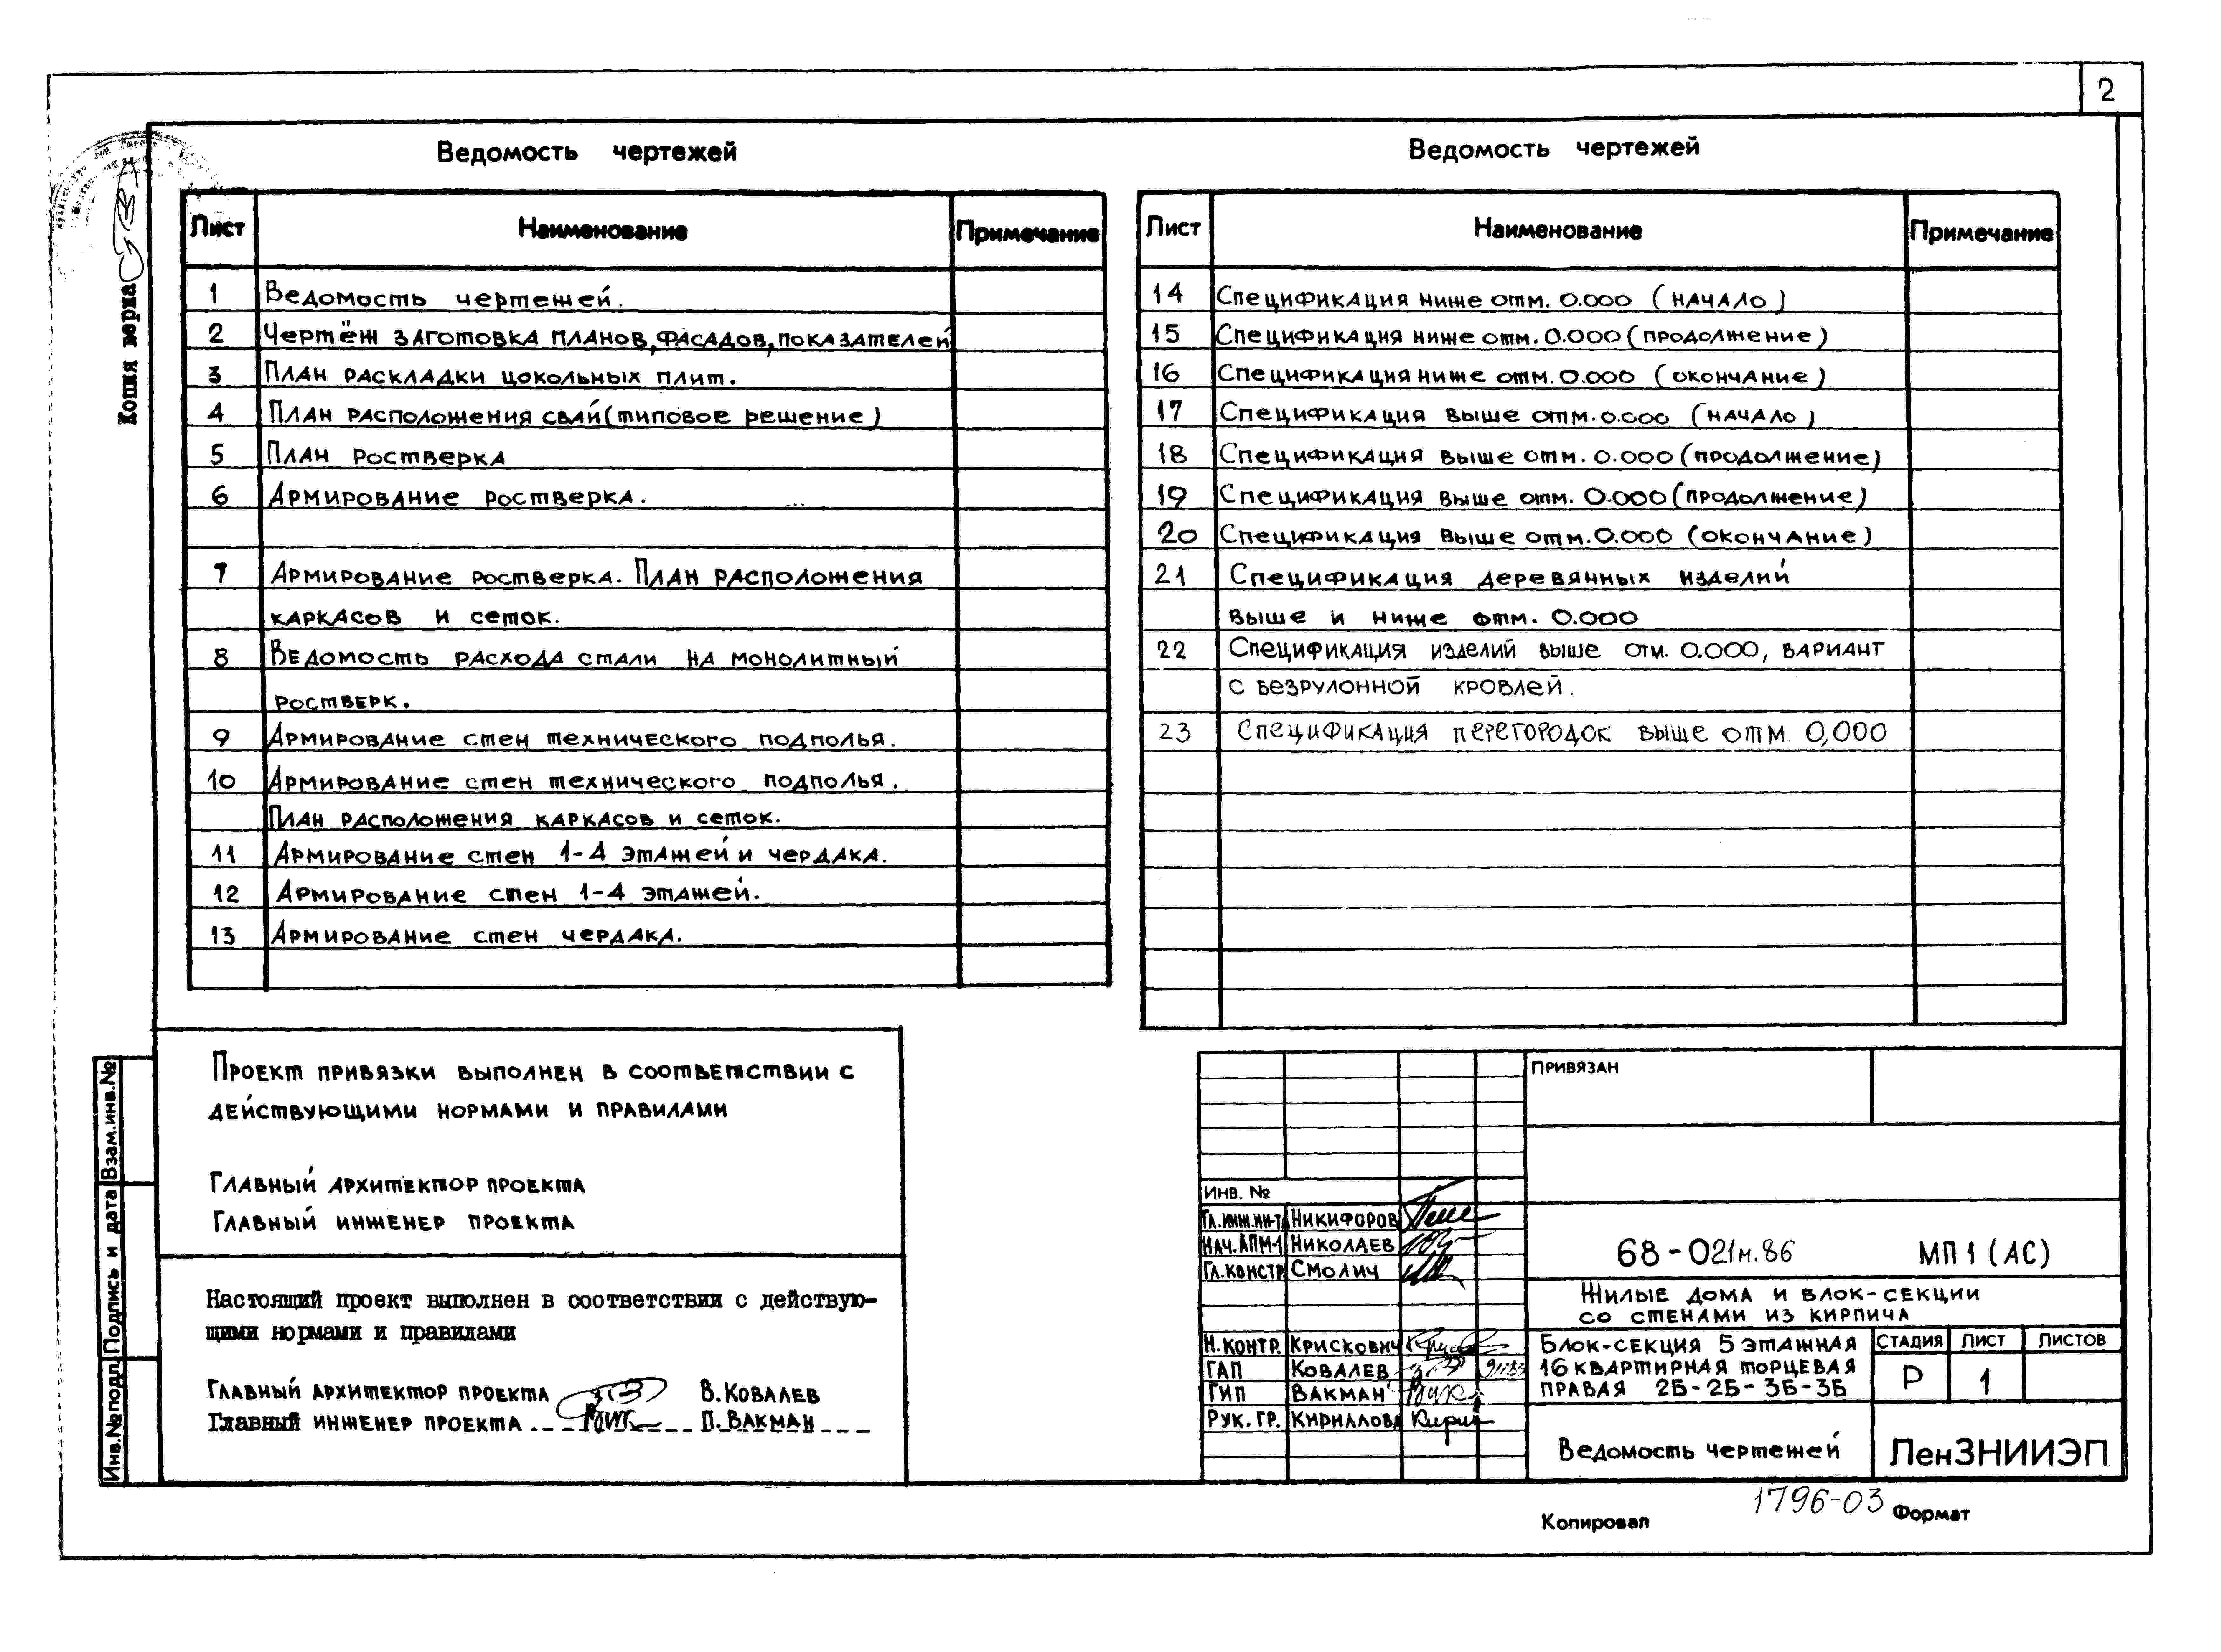 2
Ведомость чертежей
Лист Наименование Примечание
1 Ведомость чертежей.
2 Чертёж заготовка планов, фасадов, показателей
3 План раскладки цокольных плит.
4 План расположения свай (типовое решение)
5 План ростверка
6 Армирование ростверка.
7 Армирование ростверка. План расположения
каркасов и сеток.
8 Ведомость расхода стали на монолитный
ростверк.
9 Армирование стен технического подполья.
10 Армирование стен технического подполья.
План расположения каркасов и сеток.
11 Армирование стен 1-4 этажей и чердака.
12 Армирование стен 1-4 этажей.
13 Армирование стен чердака.
Ведомость чертежей
Лист Наименование Примечание
14 Спецификация ниже отм. 0.000 (начало)
15 Спецификация ниже отм. 0.000 (продолжение)
16 Спецификация ниже отм. 0.000 (окончание)
17 Спецификация выше отм. 0.000 (начало)
18 Спецификация выше отм. 0.000 (продолжение)
19 Спецификация выше отм. 0.000 (продолжение)
20 Спецификация выше отм. 0.000 (окончание)
21 Спецификация деревянных изделий
выше и ниже отм. 0.000
22 Спецификация изделий выше отм. 0.000, вариант
с безрулонной кровлей.
23 Спецификация перегородок выше отм 0,000
Копия верна
Проект привязки выполнен в соответствии с
действующими нормами и правилами
Главный архитектор проекта
Главный инженер проекта
Настоящий проект выполнен в соответствии с действую-
щими нормами и правилами
Главный архитектор проекта В. Ковалев
Главный инженер проекта П. Вакман
Взам.инв.№
Подпись и дата
Инв.№подл.
Привязан
Инв. №
Гл.инж.ин-та Никифоров
Нач. АПМ-1 Николаев
Гл.констр Смолич
Н.контр. Крискович
ГАП Ковалев
ГИП Вакман
Рук. гр. Кириллова
68-021м.86 МП1 (АС)
Жилые дома и блок-секции
со стенами из кирпича
Блок-секция 5 этажная
16 квартирная торцевая
правая 2Б-2Б-3Б-3Б
Стадия Лист Листов
Р 1
Ведомость чертежей
ЛенЗНИИЭП
1796-03
Копировал Формат